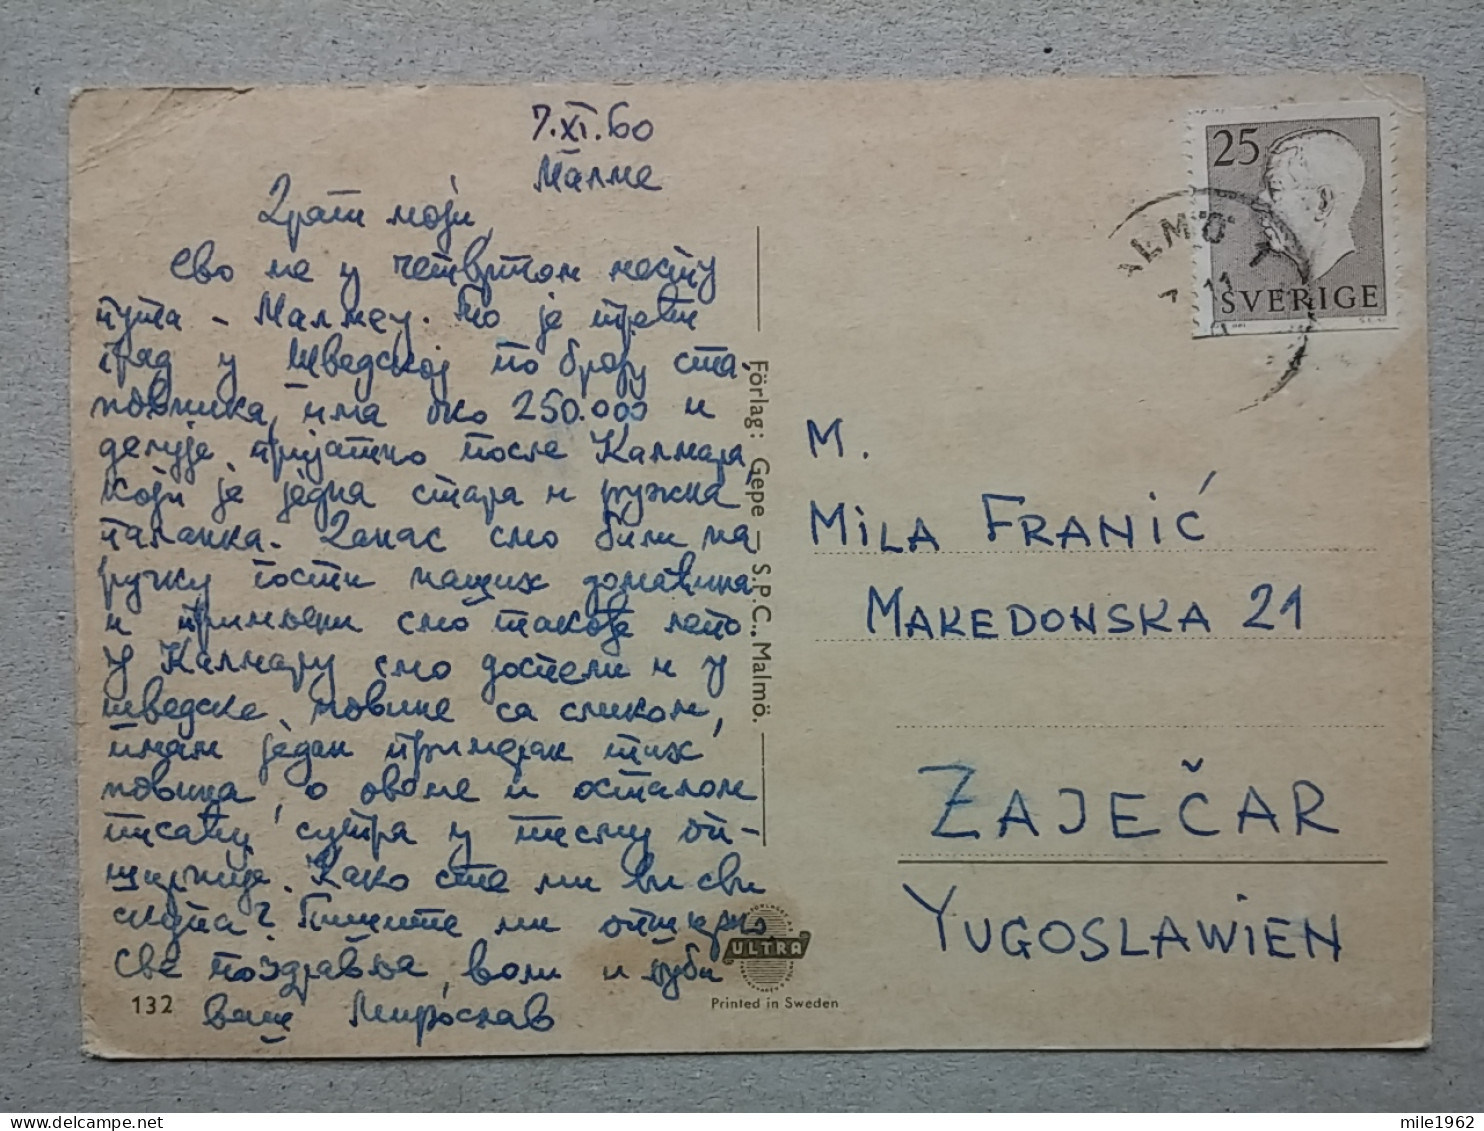 7.XI.60
Малме
Драги моји,
Ево ме у четвртом месту
пута - Малмеу. То је трећи
град у Шведској по броју ста-
новника, има око 250.000 и
делује пријатно после Калмара,
који је једна стара и ружна
паланка. Данас смо били на
ручку гости наших домаћина
и примљени смо такође лепо.
У Калмару смо доспели и у
шведске новине са сликом,
имам један примерак тих
новина, о овоме и осталом
писаћу сутра у писму оп-
ширније. Како сте ми ви сви
скупа? Пишите ми опширно,
све поздравља, воли и љуби
ваш Мирослав
132
Förlag: Gepe - S.P.C., Malmö.
ULTRA
Printed in Sweden
25
SVERIGE
MALMÖ 1
M.
MILA FRANIĆ
MAKEDONSKA 21
ZAJEČAR
YUGOSLAWIEN
mile1962